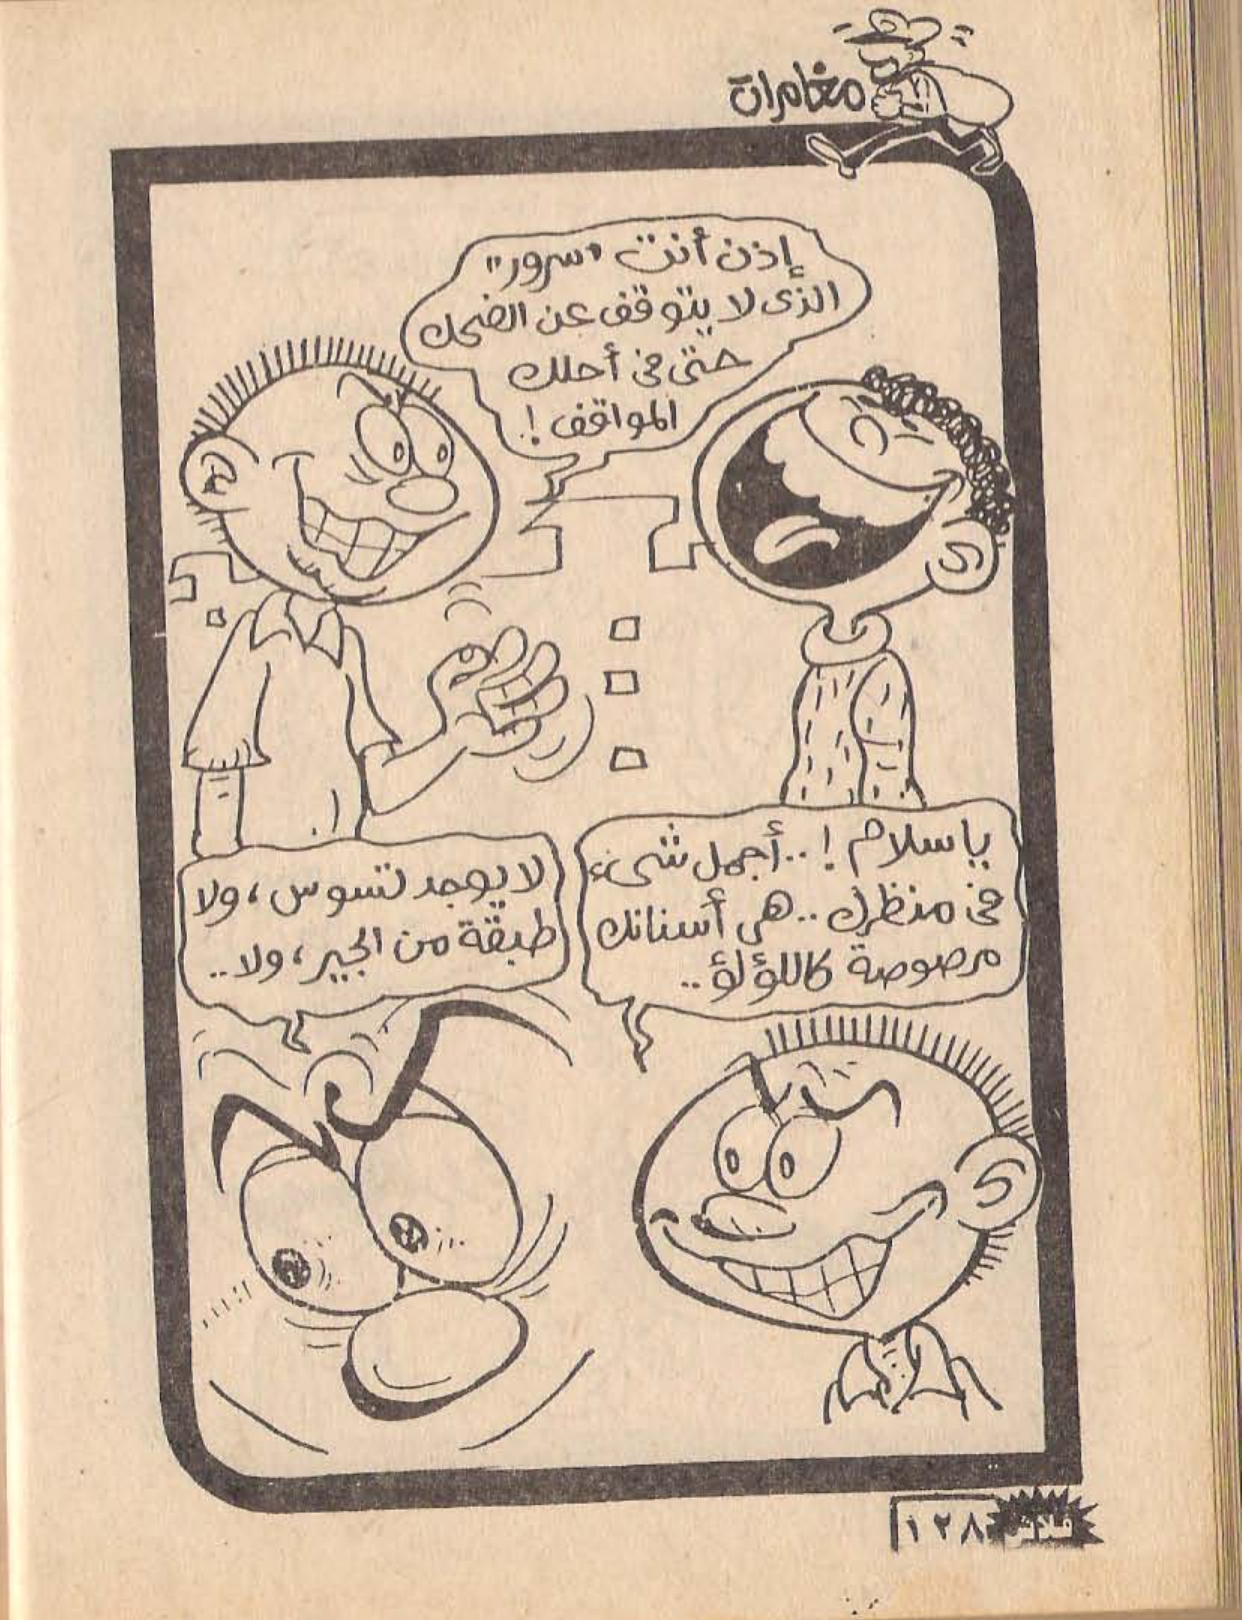 مغامرات
إذن أنت "سرور"
الذى لا يتوقف عن الضحك
حتى فى أحلك
المواقف !
ياسلام !.. أجمل شىء
فى منظرك .. هى أسنانك
مرصوصة كاللؤلؤ ..
لا يوجد تسوس ، ولا
طبقة من الجير ، ولا ..
فلاش ١٢٨